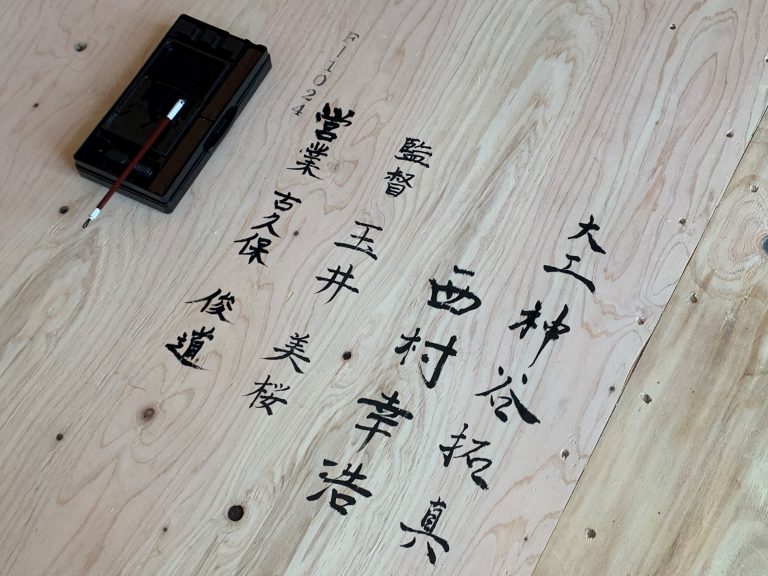 大工 神谷 拓真
西村 幸浩
監督 玉井 美桜
営業 古久保 俊道
F-1024